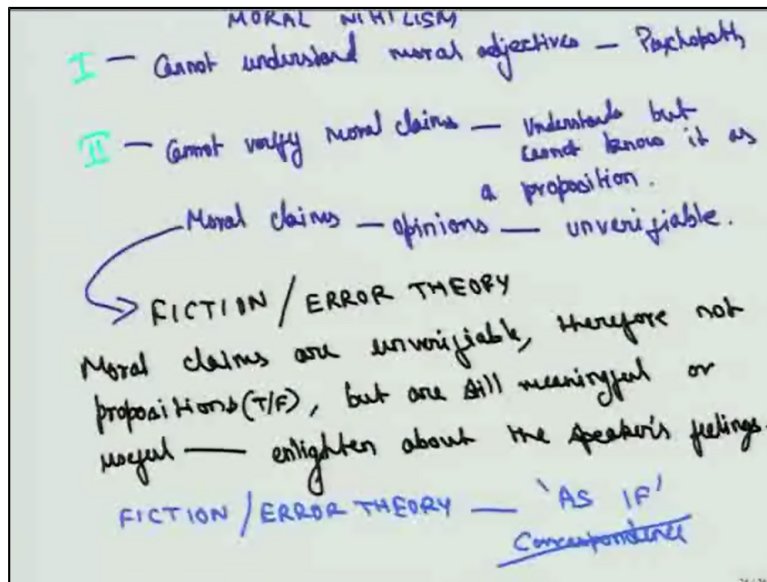 MORAL NIHILISM
I — Cannot understand moral adjectives — Psychopath
II — Cannot verify moral claims — Understands but
cannot know it as
a proposition.
Moral claims — opinions — unverifiable.
FICTION / ERROR THEORY
Moral claims are unverifiable, therefore not
propositions (T/F), but are still meaningful or
useful — enlighten about the speaker's feelings.
FICTION / ERROR THEORY — 'AS IF'
Correspondence